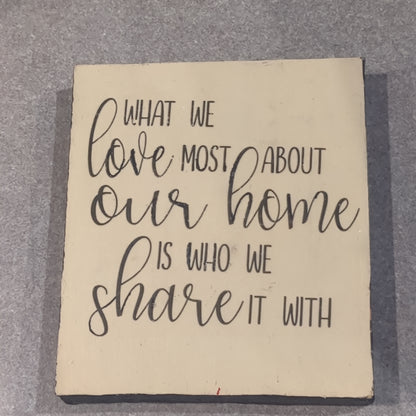 WHAT WE
love MOST ABOUT
our home
IS WHO WE
share IT WITH